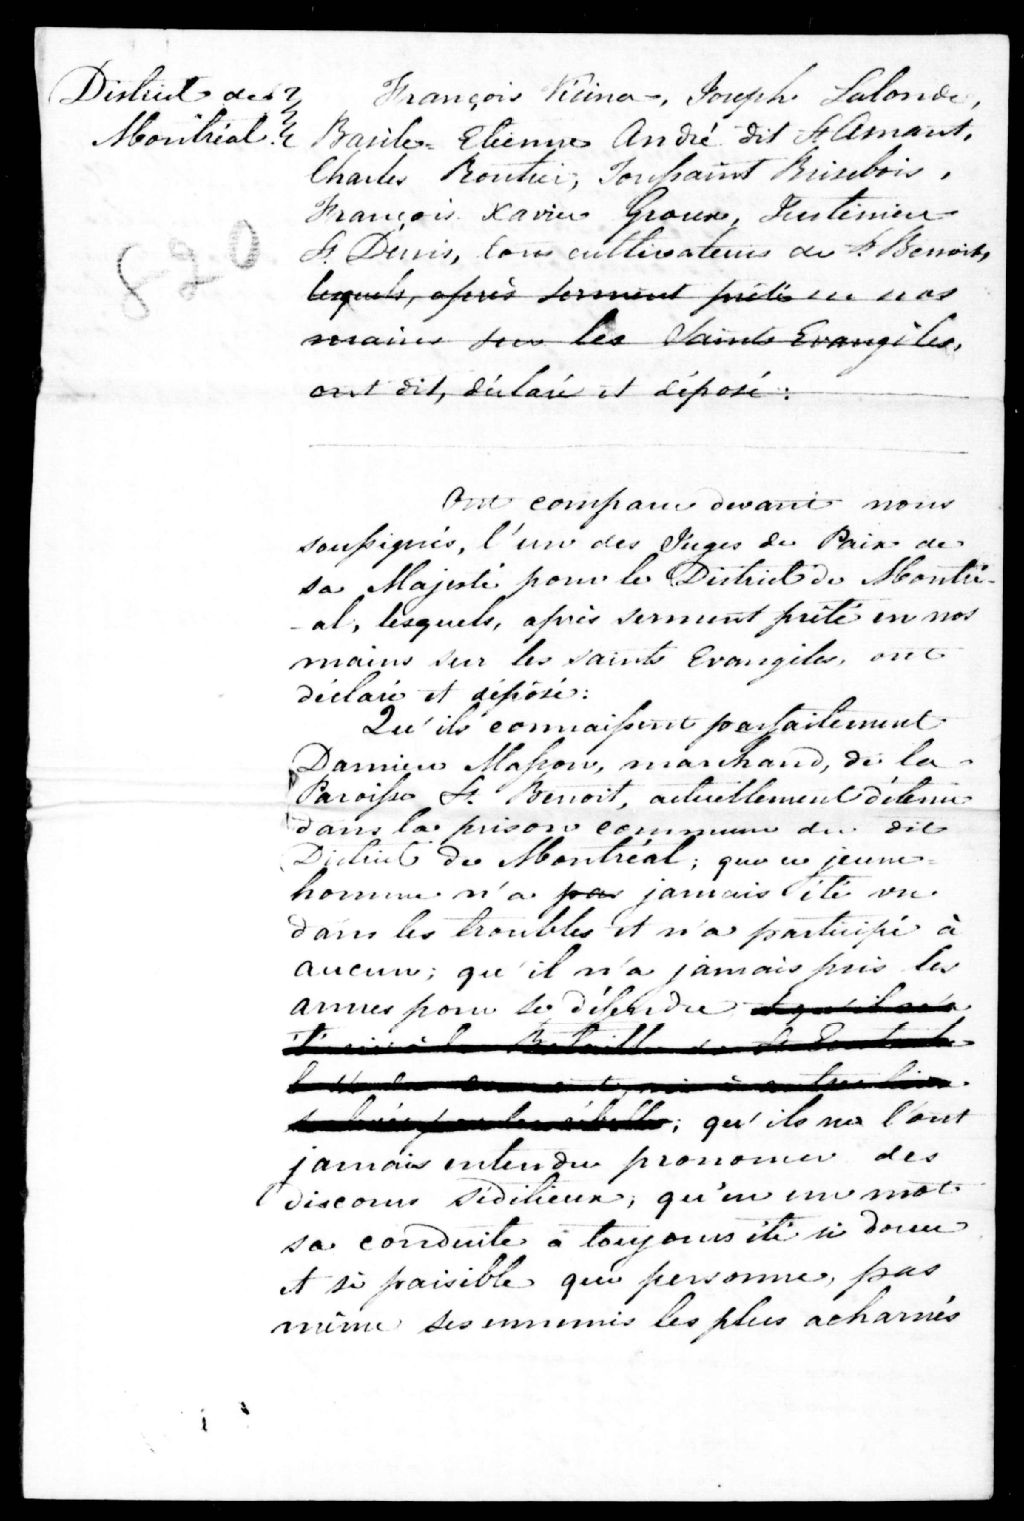 District de
Montréal.
820
François Viina, Joseph Lalonde,
Basile Etienne André dit St Amant,
Charles Routier, Toussaint Brisebois,
François Xavier Groux, Justinien
St. Dénis, tous cultivateurs de St Benoit,
lesquels, après serment prété en nos
mains sur les Saints Evangiles,
ont dit, déclaré et déposé:
Ont comparu devant nous
soussignés, l'un des Juges de Paix de
sa Majesté pour le District de Montré-
-al, lesquels, après serment prété en nos
mains sur les saints Evangiles, ont
déclaré et déposé:
Qu'ils connaissent parfaitement
Damien Masson, marchand, de la
Paroisse St. Benoit, actuellement détenu
dans la prison commune du dit
District de Montréal; que ce jeune
homme n'a pas jamais été vu
dans les troubles et n'a participé à
aucun; qu'il n'a jamais pris les
armes pour se défendre et qu'il n'a
été ni à la Bataille de St
; qu'ils ne l'ont
jamais entendu prononcer des
discours séditieux; qu'en un mot
sa conduite à toujours été si douce
et si paisible que personne, pas
même ses ennemis les plus acharnés